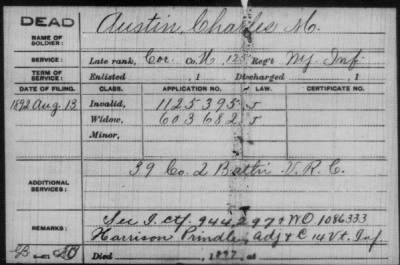 DEAD
NAME OF SOLDIER: Austin, Charles M.
SERVICE: Late rank, Cor. Co. H, 125 Reg't NY. Inf.
TERM OF SERVICE: Enlisted , 1 Discharged , 1
DATE OF FILING. CLASS. APPLICATION NO. LAW. CERTIFICATE NO.
1892 Aug. 13 Invalid, 1125395 J
Widow, 603682 J
Minor,
ADDITIONAL SERVICES: 39 Co. 2 Batt'n V.R.C.
REMARKS: See I. Ctf. 944,297 & WO 1086333
Harrison Prindle, Adj & C 14 Vt. Inf.
Died , 189 , at